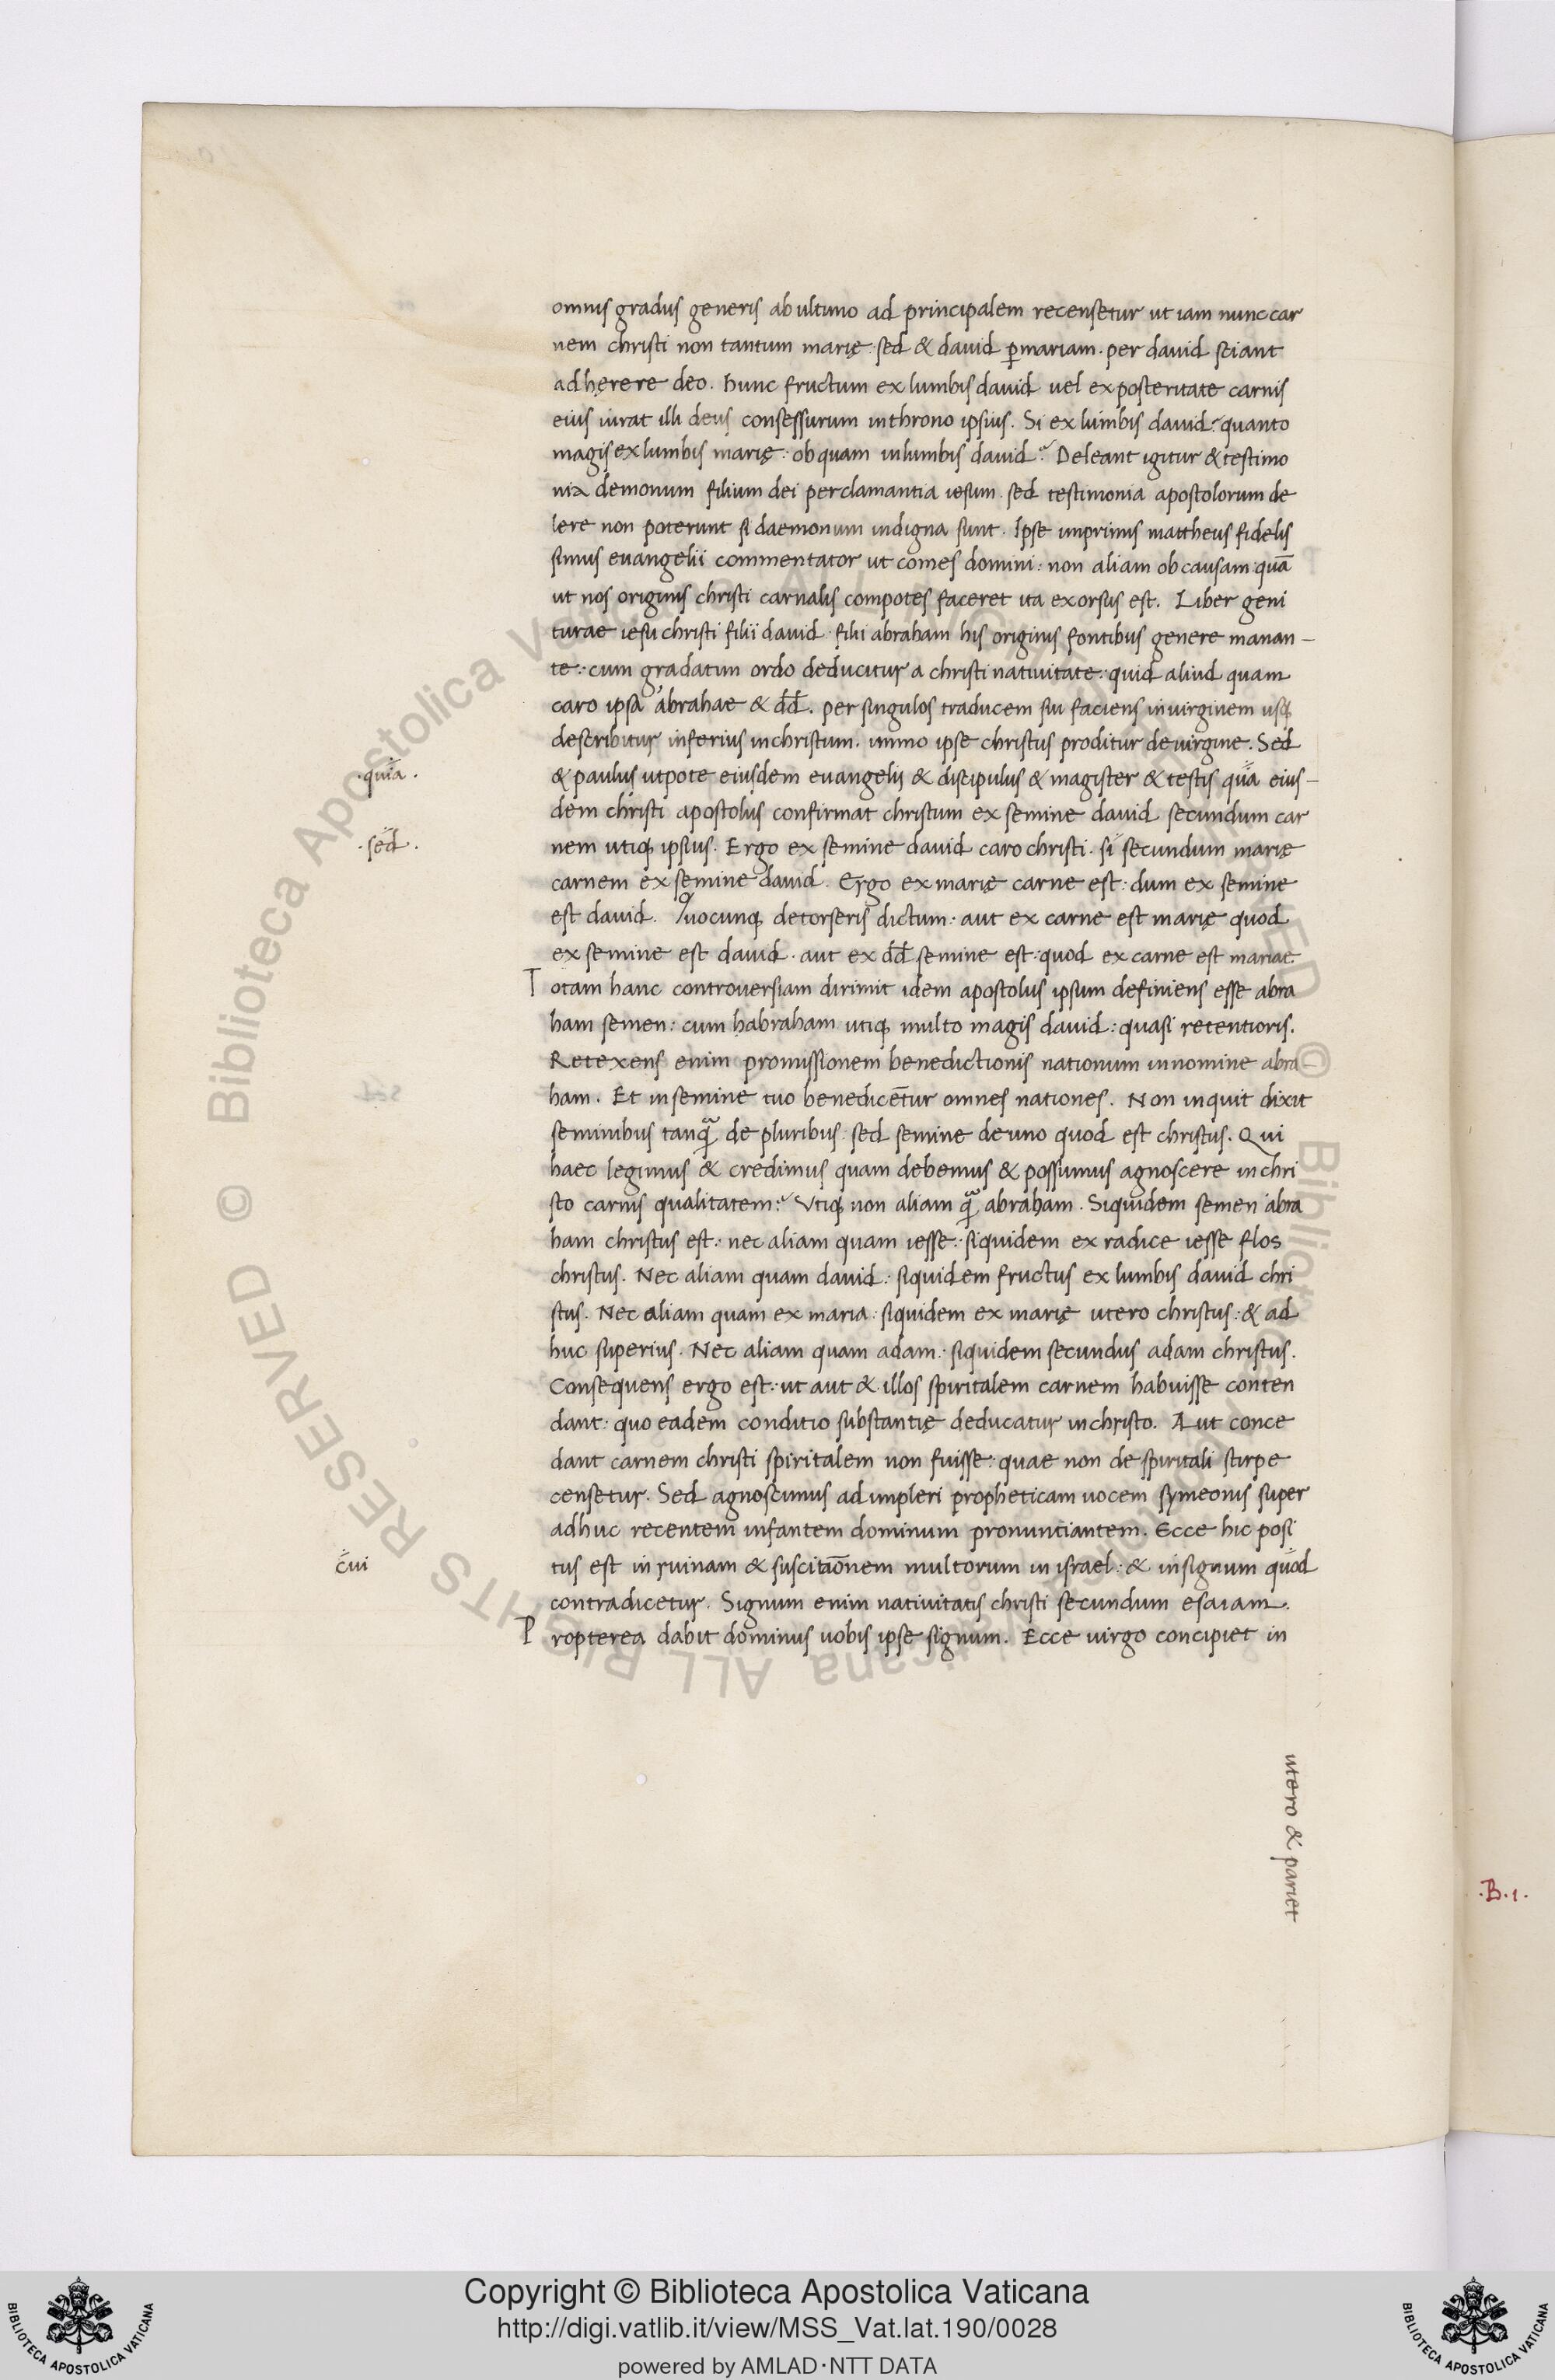 omnis gradus generis ab ultimo ad principalem recensetur ut iam nunc car
nem christi non tantum marię: sed & david p̱mariam. per david sciant
adhęrere deo. hunc fructum ex lumbis david vel ex posteritate carnis
eius iurat illi deus consessurum inthrono ipsius. Si ex lumbis david: quanto
magis ex lumbis marię: ob quam inlumbis david? Deleant igitur & testimo
nia demonum filium dei perclamantia iesum. sed testimonia apostolorum de
lere non poterunt si daemonum indigna sunt. Ipse imprimis mattheus fidelis
simus euangelii commentator ut comes domini: non aliam ob causam: quā
ut nos originis christi carnalis compotes faceret ita exorsus est. Liber geni
turae iesu christi filii david: filii abraham his originis fontibus genere manan–
te: cum gradatim ordo deducitur a christi nativitate: quid aliud quam
caro ipsa abrahae & dd̄. per singulos traducem sui faciens in virginem usq;
describitur inferius inchristum. immo ipse christus proditur de virgine. Sed
·quia·
& paulus utpote eiusdem euangelij & discipulus & magister & testis qua eius–
dem christi apostolus confirmat christum ex semine david secundum car
·sed·
nem utiq; ipsius. Ergo ex semine david caro christi. si secundum marię
carnem ex semine david. Ergo ex marię carne est: dum ex semine
est david. Quocunq; detorseris dictum: aut ex carne est marię quod
ex semine est david. aut ex dd̄ semine est: quod ex carne est mariae.
Totam hanc controversiam dirimit idem apostolus ipsum definiens esse abra
ham semen: cum habraham utiq; multo magis david: quasi retentioris.
Retexens enim promissionem benedictionis nationum innomine abra–
ham. Et insemine tuo benedicēTur omnes nationes. Non inquit dixit
seminibus tanq̄ de pluribus: sed semine de uno quod est christus. Qui
haec legimus & credimus quam debemus & possumus agnoscere in chri
sto carnis qualitatem? Utiq; non aliam q̄ abraham. Siquidem semen abra
ham christus est: nec aliam quam iesse: siquidem ex radice iesse flos
christus. Nec aliam quam david: siquidem fructus ex lumbis david chri
stus. Nec aliam quam ex maria: siquidem ex marię utero christus: & ad
huc superius. Nec aliam quam adam: siquidem secundus adam christus.
Consequens ergo est: ut aut & illos spiritalem carnem habuisse conten
dant: quo eadem conditio substantię deducatur in christo. Aut conce
dant carnem christi spiritalem non fuisse: quae non de spiritali stirpe
censetur. Sed agnoscimus adimpleri propheticam vocem symeonis super
adhuc recentem infantem dominum pronunciantem. Ecce hic posi
c̄ui
tus est in ruinam & suscitāōnem multorum in israel: & insignum quod
contradicetur. Signum enim nativitatis christi secundum esaiam.
Propterea dabit dominus vobis ipse signum. Ecce virgo concipiet in
utero & pariet
.B.1.
© Biblioteca Apostolica Vaticana ALL RIGHTS RESERVED
Copyright © Biblioteca Apostolica Vaticana
http://digi.vatlib.it/view/MSS_Vat.lat.190/0028
powered by AMLAD·NTT DATA
BIBLIOTECA APOSTOLICA VATICANA
BIBLIOTECA APOSTOLICA VATICANA